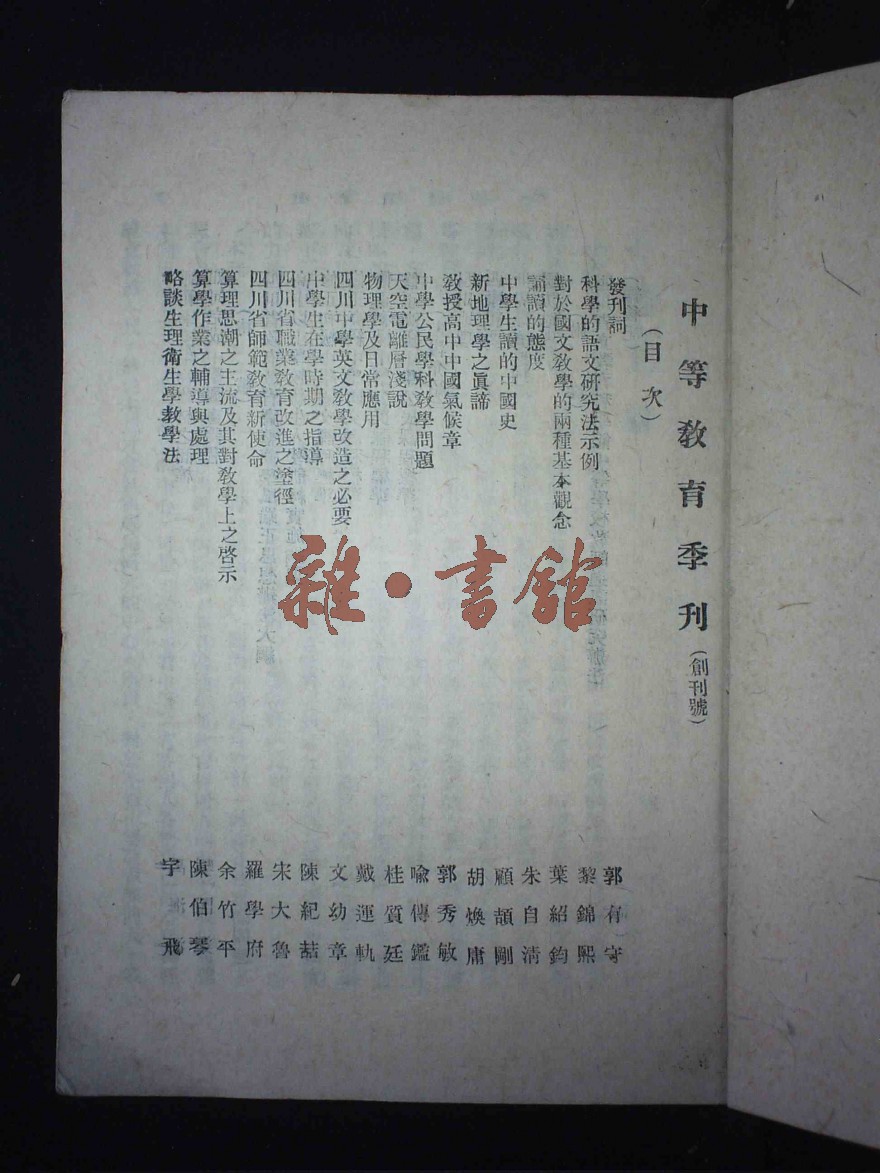 中等教育季刊(創刊號)
(目次)
發刊詞 郭有守
科學的語文研究法示例 黎錦熙
對於國文教學的兩種基本觀念 葉紹鈞
誦讀的態度 朱自清
中學生讀的中國史 顧頡剛
新地理學之眞諦 胡煥庸
教授高中中國氣候章 郭秀敏
中學公民學科教學問題 喩傳鑑
天空電離層淺說 桂質廷
物理學及日常應用 戴運軌
四川中學英文教學改造之必要 文幼章
中學生在學時期之指導 陳紀喆
四川省職業教育改進之塗徑 宋大魯
四川省師範教育新使命 羅學府
算理思潮之主流及其對教學上之啓示 余竹平
算學作業之輔導與處理 陳伯琴
略談生理衛生學教學法 宇飛
雜·書館